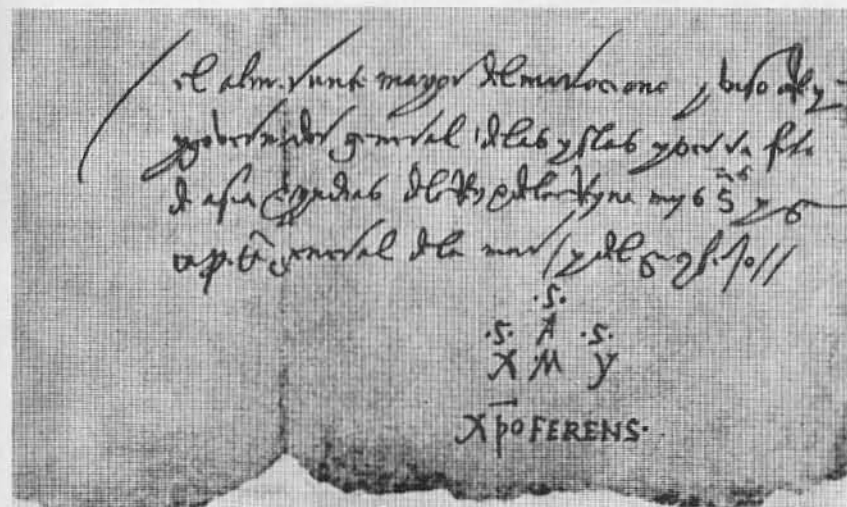 el almirante mayor del mar oceano y viso Rey
y governador general de las yslas y tierra firme
de asia e yndias del Rey e de la Reyna mys S y
capitā general de la mar y del
.S.
.S. A .S.
X M Y
Xp̄oFERENS.